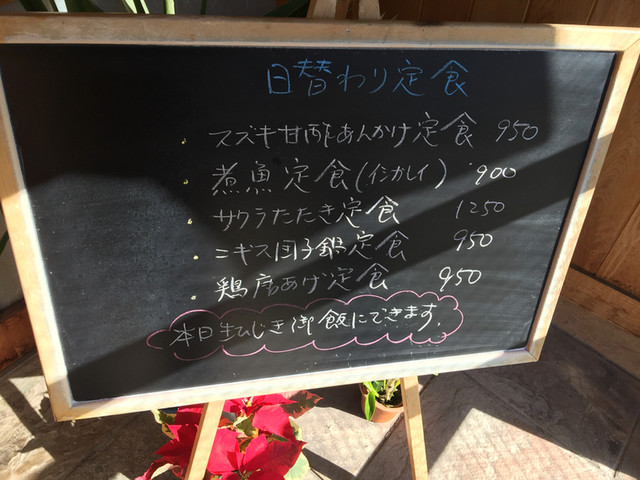 日替わり定食
・スズキ甘酢あんかけ定食 950
・煮魚定食(イシガレイ) 900
・サクラたたき定食 1250
・ニギス団子鍋定食 950
・鶏唐あげ定食 950
本日生ひじき御飯にできます。